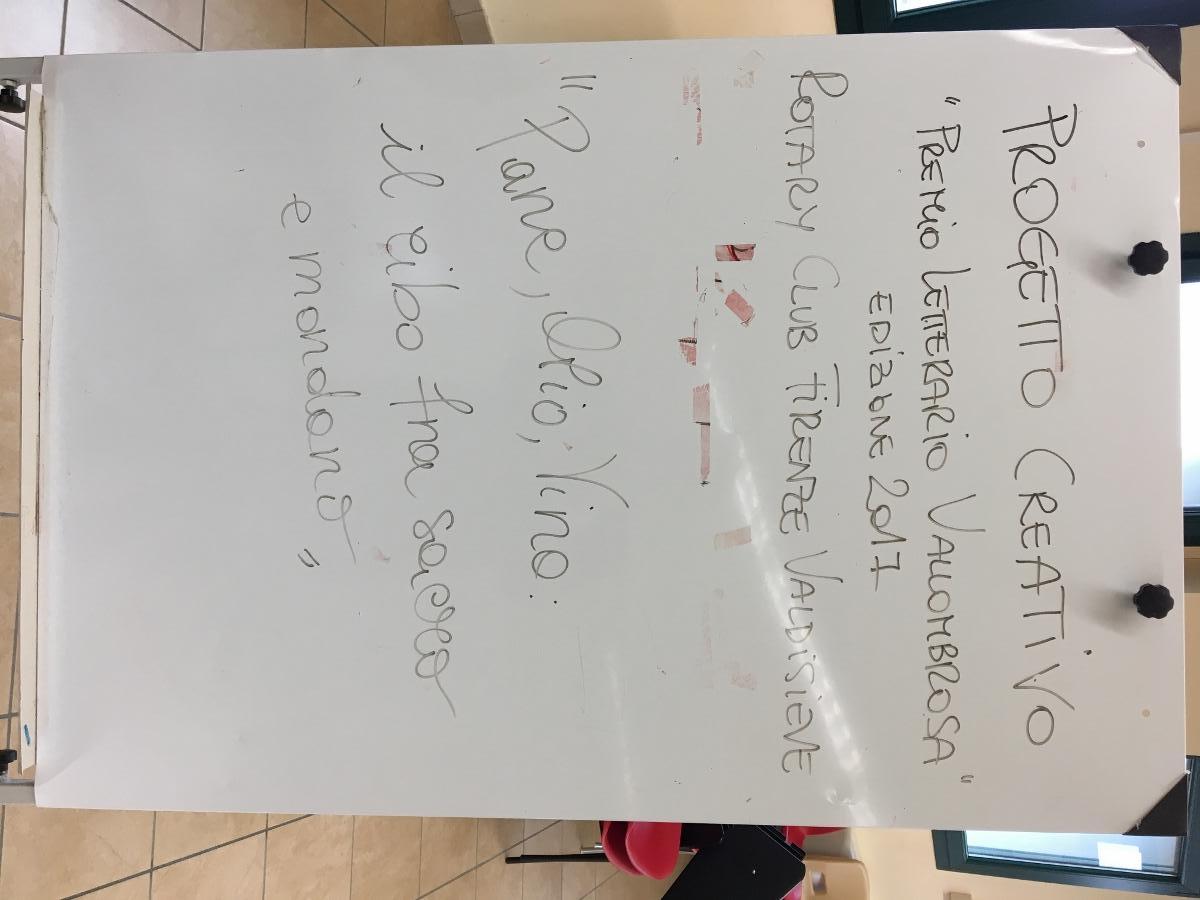 PROGETTO CREATIVO
"PREMIO LETTERARIO VALLOMBROSA"
EDIZIONE 2017
ROTARY CLUB FIRENZE VALDISIEVE
"Pane, Olio, Vino:
il cibo fra sacro
e mondano"